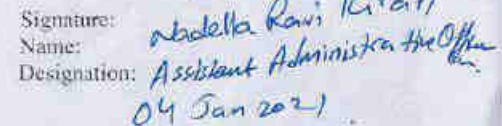 Signature:
Name: Nadella Ravi Kiran
Designation: Assistant Administrative Officer
04 Jan 2021